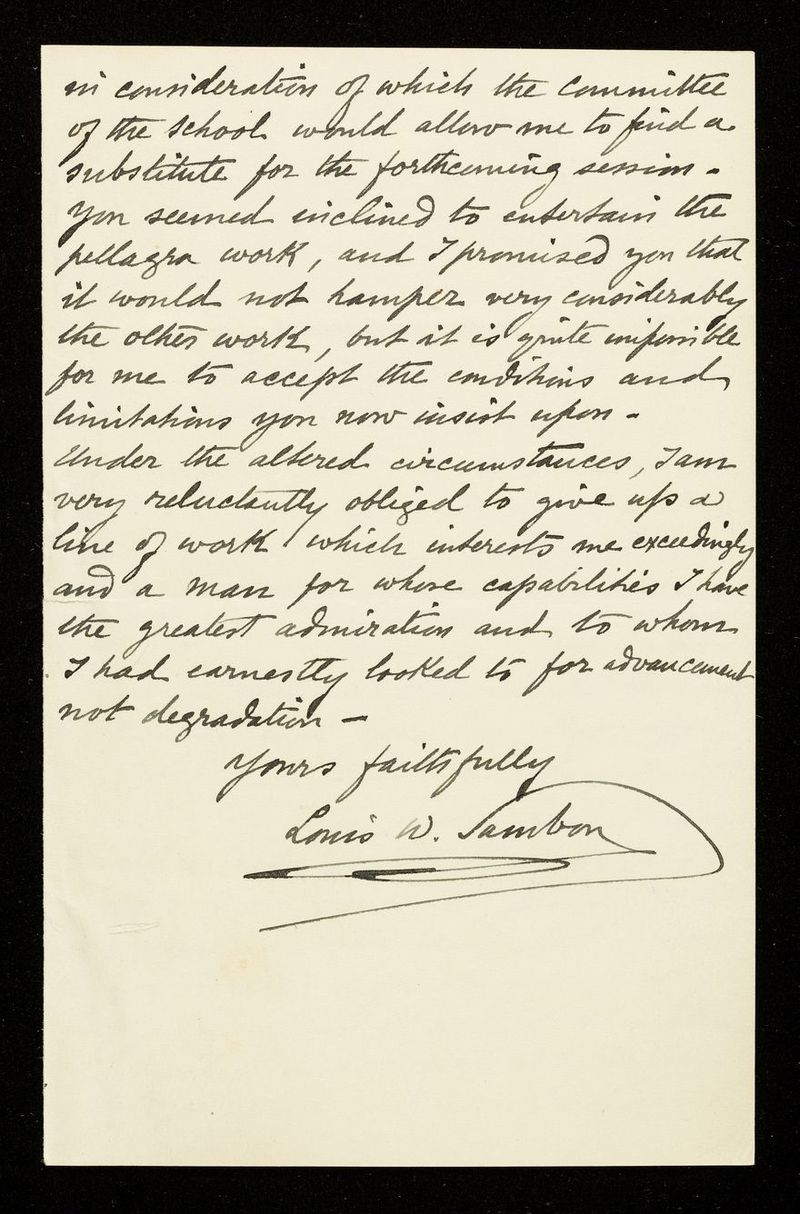 in consideration of which the Committee
of the School would allow me to find a
substitute for the forthcoming session -
You seemed inclined to entertain the
pellagra work, and I promised you that
it would not hamper very considerably
the other work, but it is quite impossible
for me to accept the conditions and
limitations you now insist upon -
Under the altered circumstances, I am
very reluctantly obliged to give up a
line of work which interests me exceedingly
and a man for whose capabilities I have
the greatest admiration and to whom
I had earnestly looked to for advancement
not degradation -
Yours faithfully
Louis W. Sambon